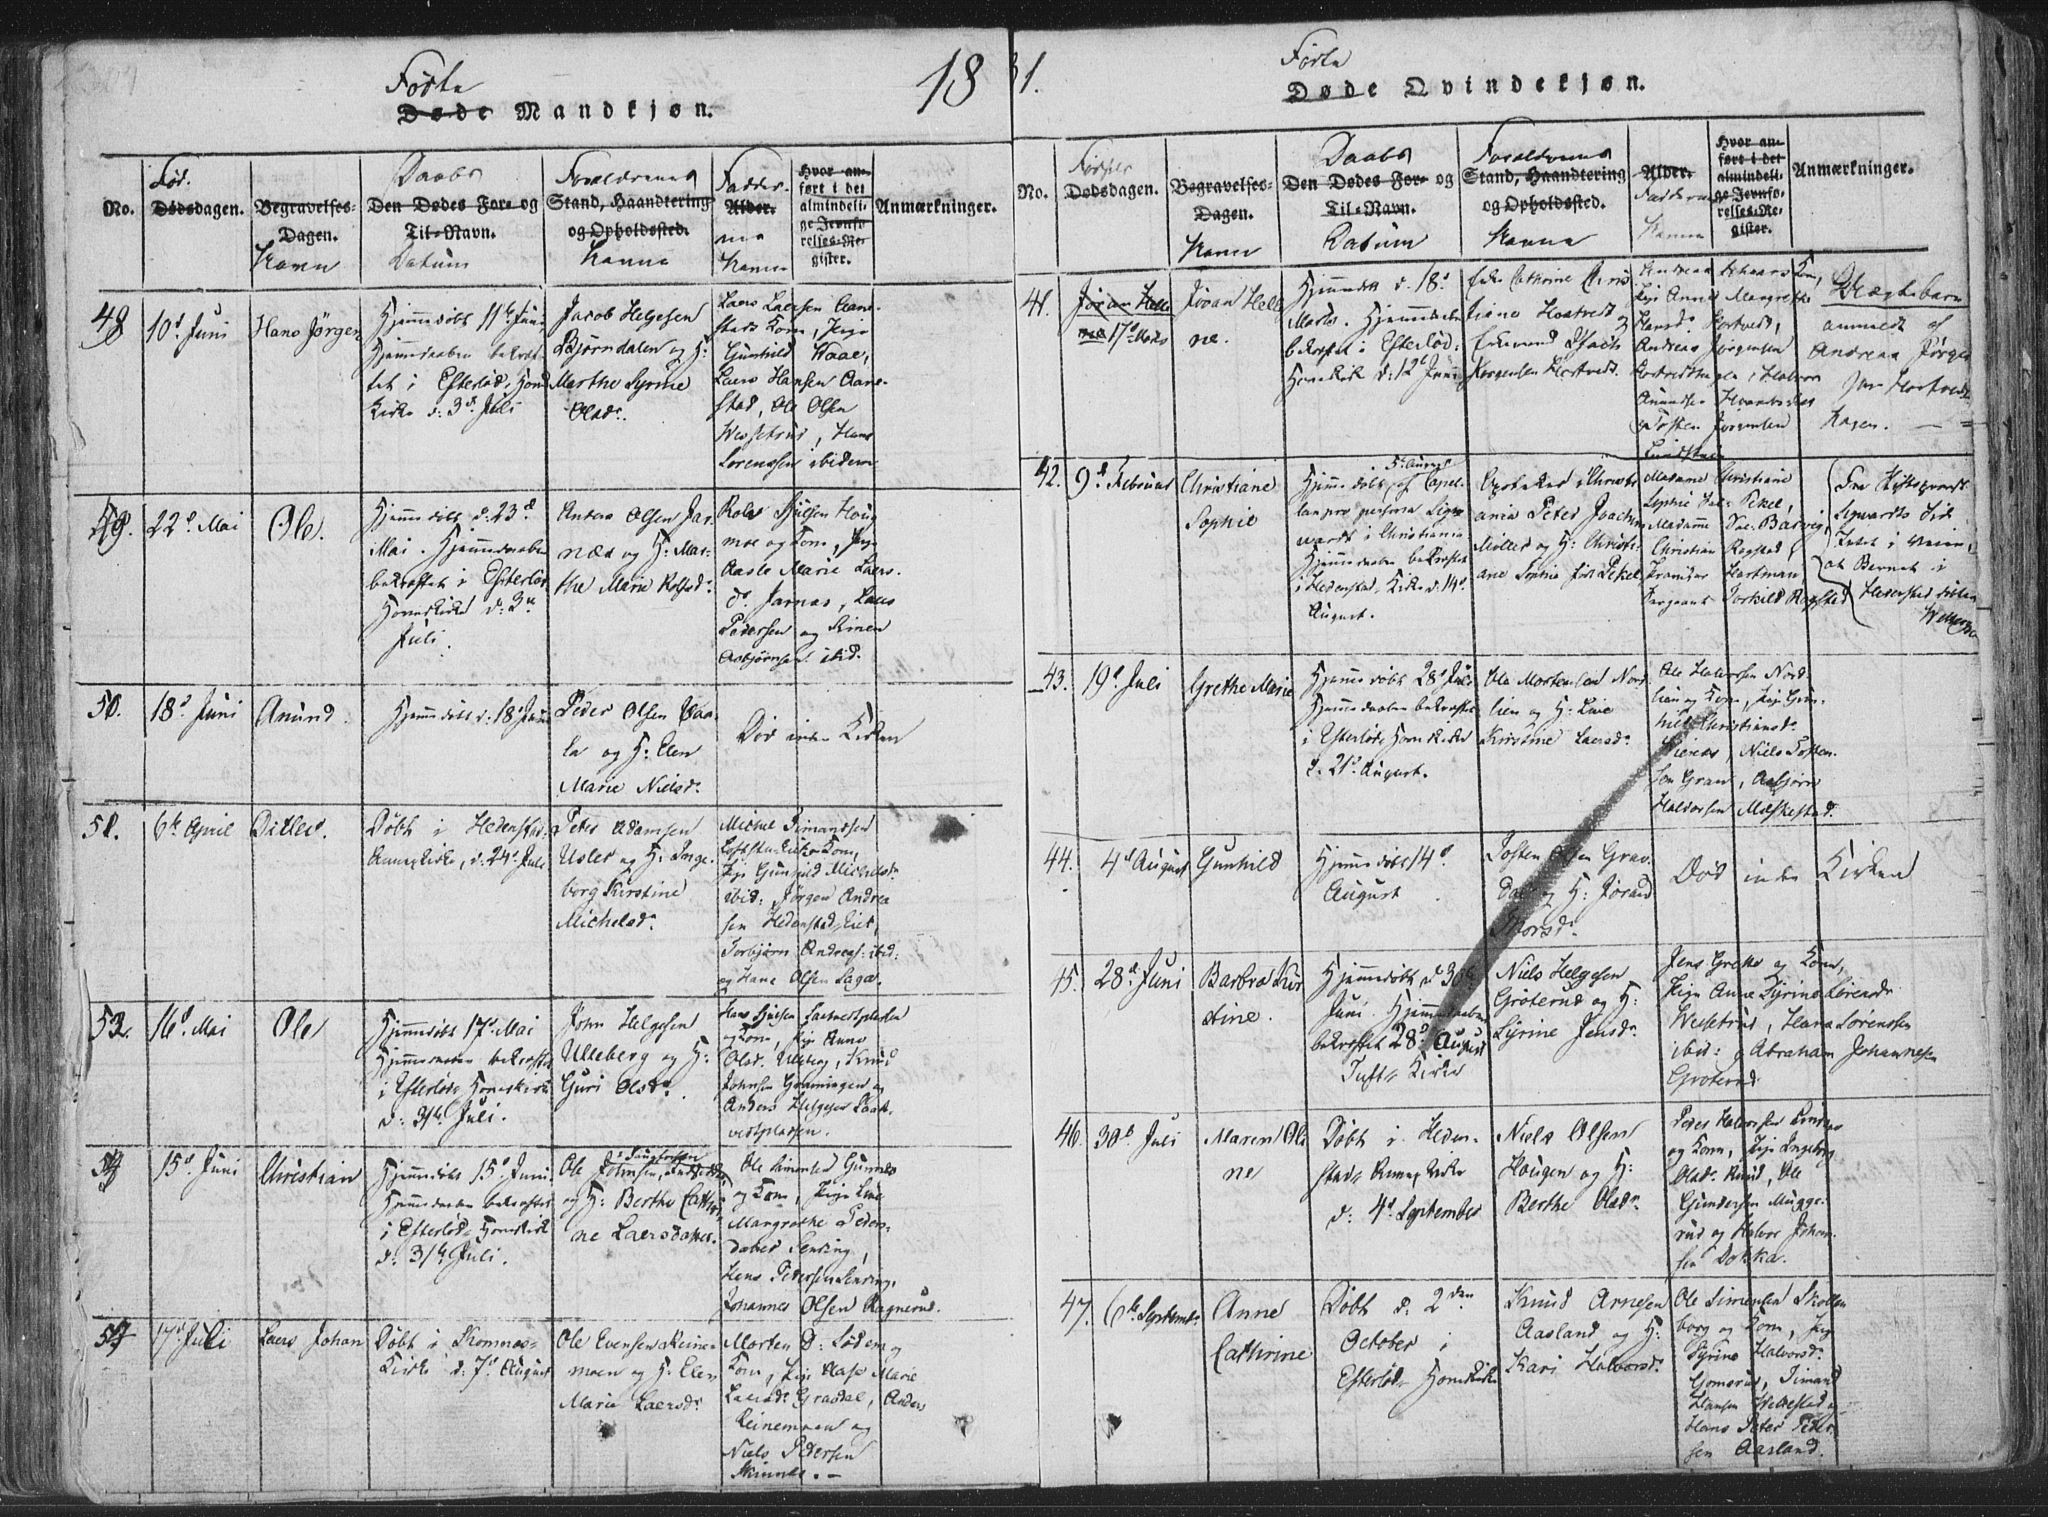 Fødte
Døde Mandkjøn.
18
No.
Fød.
Dødsdagen.
Begravelses-
Dagen.
Navn
Daabs
Den Dødes For- og
Til-Navn.
Datum
Forældrenes
Stand, Haandtering
og Opholdssted.
Navne
Faddere
Alder.
nes
Navne
Hvor an-
ført i det
almindeli-
ge Jevnfø-
relses-Re-
gister.
Anmærkninger.
48
10d Juni
Hans Jørgen
Hjemmedøbt 11te Juni
Hjemmedaaben bekræf-
tet i Efteløds Hoved
Kirke d: 3d Juli
Jacob Helgesen
Bjørndalen og H:
Marthe Syrine
Olsdr.
Laers Laersen Aane-
stads Kone, Pige
Gunhild Waae,
Laers Hansen Aane-
stad, Ole Olsen
Hans
Sørensen ibidem
49.
22d Mai
Ole.
Hjemmedøbt d: 23d
Mai. Hjemmedaaben
bekræftet i Efteløds
Hovedkirke d: 3d
Juli.
Anders Olsen Jar-
næs og H: Mar-
the Marie Rolfsdr.
Moe og Kone, Pige
Aaste Marie Laers-
dr. Jarnæs, Laers
Pedersen og Stinen
Asbjørnsen ibid.
50.
18d Juni
Anund.
Hjemmedøbt d: 18d Juni
Peder Olsen
la og H: Elen
Marie Nielsdr.
Død inden Kirken
51.
6te April
Ditlev.
Døbt i Hedenstad
Annex Kirke, d: 24d Juli
Peter Adamsen
og H: Inge-
borg Kirstine
Michelsdr.
Michel Simondsen
Kone,
Pige Gunhild Michelsdr.
ibid: Jørgen Andrea
sen Hedenstad Eiet,
Torbjørn Andreas: ibid:
og Hans Olsen Laga.
52.
16d Mai
Ole
Hjemmedøbt 17d Mai
Hjemmedaaben bekræftet
i Efteløds Hovedkirke
d: 31te Juli.
John Helgesen
Ulteberg og H:
Guri Olsdr.
og Kone, Pige Anne
Olsdr. Ulteberg, Knud
Johnsen Grønningen og
Anders Helgesen Laat-
vedtpladsen.
53
15d Juni
Christian
Hjemmedøbt 15d Juni.
Hjemmedaaben bekræftet
i Efteløds Hovedkirke
d: 31te Juli.
Ole Johnsen,
og H: Berthe Cathri-
ne Laersdatter.
Ole Simensen Gunnes
og Kone, Pige Line
Margrethe Peders-
datter Sensing,
Hans Pedersen Sensing,
Johannes Olsen Ragnerud.
54
17d Juli
Laers Johan
Døbt i Komnæs-
Kirke d: 7d August
Ole Evensen Reine-
moen og H: Elen
Marie Laersdr.
Morten D: Løden og
Kone, Pige Aase Marie
Laersdr. Grosdal, Anders
Reinemoen og
Niels Pedersen
Skinnes. –
31.
Fødte
Døde Qvindekjøn.
No.
Fødsels
Dødsdagen.
Begravelses-
Dagen.
Navne
Daabs
Den Dødes For- og
Til-Navn.
Datum
Forældrenes
Stand, Haandtering
og Opholdssted.
Navne
Alder.
Faddernes
Navne
Hvor an-
ført i det
almindeli-
ge Jevnfø-
relses-Re-
gister.
Anmærkninger.
41.
Jøran Hele
nes 17d Marts
Jøran Hele
ne.
Hjemmedøbt d. 18d
Marts. Hjemmedaaben
bekræftet i Efteløds
Hovedkirke d: 12te Juni
Cathrine Chris
tiane Hostvedt og
Isach
Jørgensen Hostvedt.
Kone,
Pige Anne Margrethe
Hansdr. Hostvedt,
Andreas Jørgensen
Hostvedthagen, Halvor
Amundsen
Tosten Jørgensen
Uægte barn
anmeldt af
Andreas Jørgen
sen Hostvedt
hagen. – =
42.
9d Februar
Christiane
Sophie
Hjemmedøbt 5d August af Capel-
lan pro persona Sig-
wardt i Christiania
Hjemmedaaben bekræftet
i Hedenstad Kirke d. 14d
August.
Apotheker i Christi
ania Peter Joachim
Møller og H: Christi-
ane Sophie født Pekel,
Madame Christiane
Sophie Pekel,
Madamme
Christian Rogstad,
Hartman,
Sergeant Torkild Rogstad
at Barnet i
43.
19d Juli
Grethe Marie
Hjemmedøbt 28d Juli
Hjemmedaaben bekræftet
i Efteløds Hovedkirke
d. 21d August.
Ole Mortensen Nord
lien og H: Live
Kirstine Laersdr.
Ole Halvorsen Nord
lien og Kone, Pige Gun-
hild Christiansdr.
Niels Tosten-
sen Gran, Asbjørn
Halvorsen Moskestad.
44.
4d August
Gunhild
Hjemmedøbt 14d
August
Tosten Olsen Grav-
dal og H: Jørand
Thorsdr.
Død inden Kirken
45.
28d Juni
Barbra Kir
stine.
Hjemmedøbt d 30te
Juni. Hjemmedaaben
bekræftet 28d August
Tufte Kirke
Niels Helgesen
Grøterud og H:
Syrine Jensdr.
Jens Grette og Kone,
Pige Anne Syrine Sørensdr
Hans Sørensen
ibid: og Abraham Johannesen
Grøterud.
46.
30d Juli
Maren Oli
ne
Døbt i Heden-
stads Annex Kirke
d: 4d September
Niels Olsen
Hougen og H:
Berthe Olsdr.
Peder Halvorsen
og Kone, Pige Ingeborg
Olsdr. Ruud, Ole
Gundersen Mugge-
rud og Halvor Johan-
sen Dokka.
47.
6te Septembr
Anne
Cathrine
Døbt d. 2den
October i
Efteløds Hovedkirke
Knud Arnesen
Aasland og H:
Kari Halvorsdr.
Ole Simensen Skollen
borg og Kone, Pige
Syrine Halvorsdr.
Gomsrud, Simand
Hansen og
Hans Peter Peder-
sen Aasland.